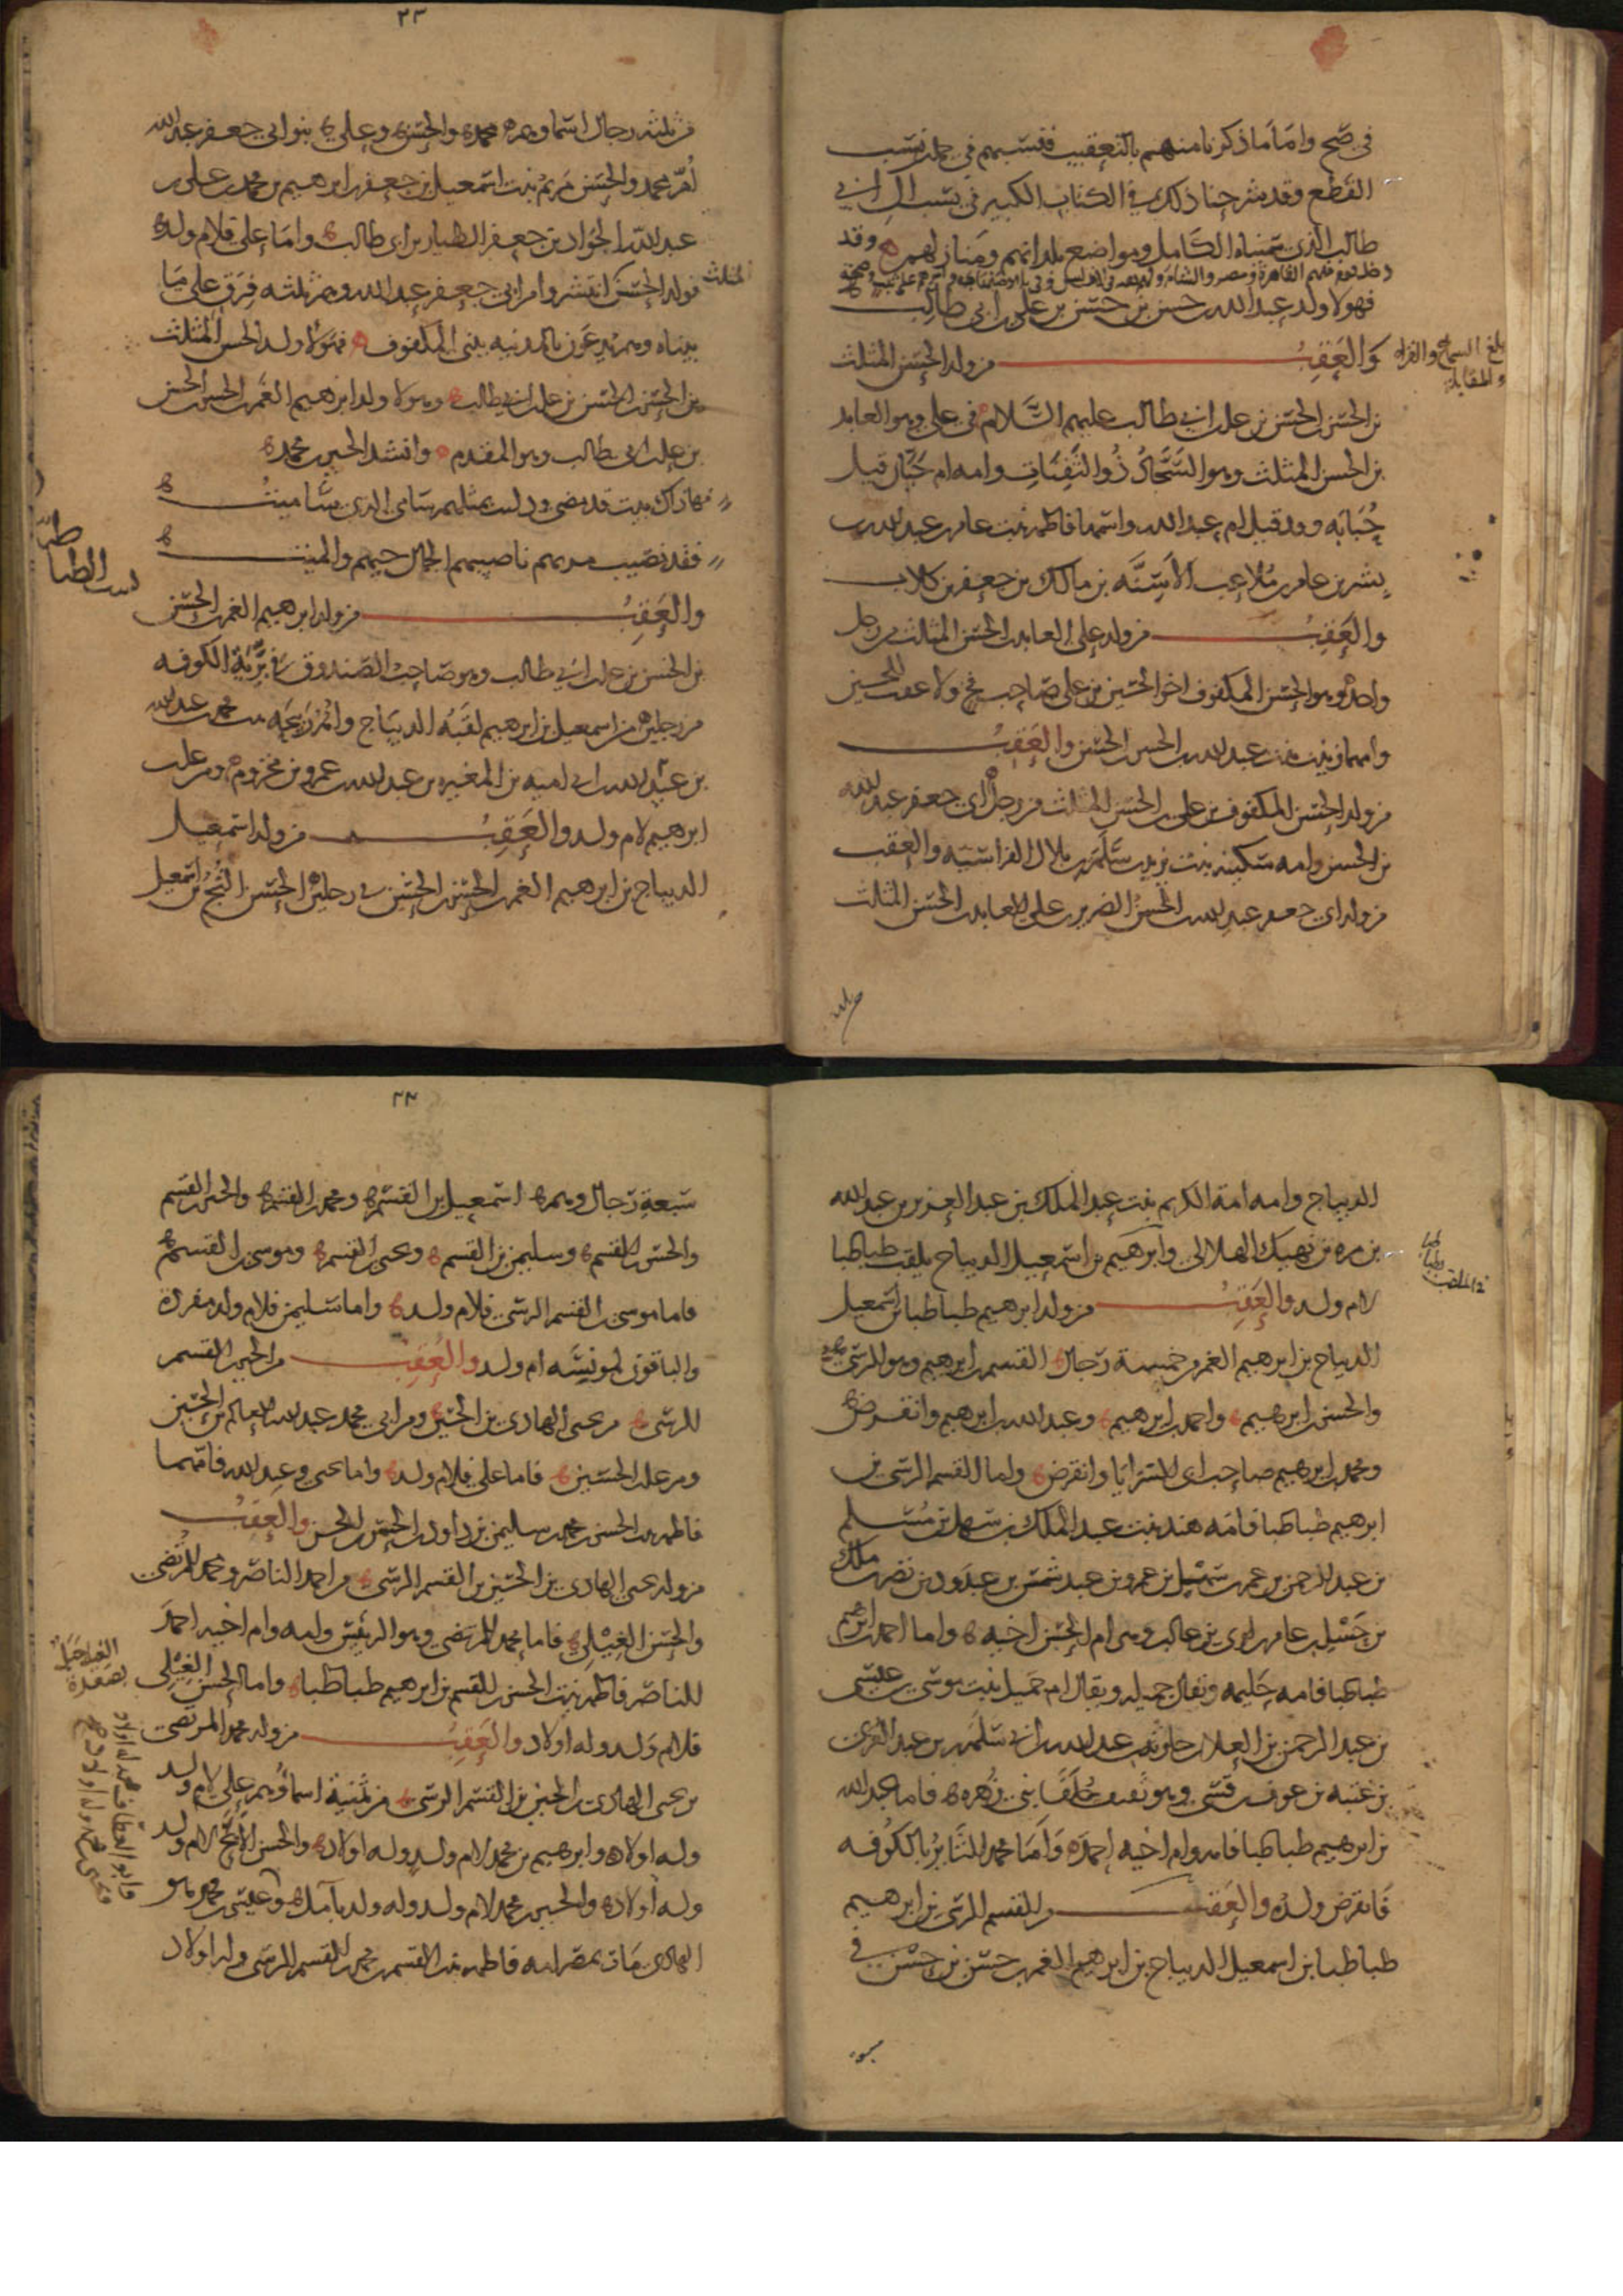 في صح واما ما ذكرنا منهم بالتعقيب فنسبهم في جملة نسب
القطع وقد شرحنا ذلك في الكتاب الكبير في نسب آل ابي
طالب الذي سميناه الكامل وهو اضع بلدانهم ومنازلهم وقد
فهولا ولد عبد الله بن حسن بن حسن بن علي بن ابي طالب
بلغ السماع والقراه
والمقابلة
والعقب من ولد الحسن المثلث
بن الحسن بن الحسن بن علي بن ابي طالب عليهم السلام في علي وهو العابد
بن الحسن المثلث وهو السجاد ذو الثفنات وامه ام حبان قيل
حبابه وقد قيل ام عبد الله واسمها فاطمة بنت عامر بن عبد الله بن
بشر بن عامر ملاعب الاسنه بن مالك بن جعفر بن كلاب
والعقب من ولد علي العابد بن الحسن المثلث من رجل
واحد وهو الحسن المكفوف اخو الحسين بن علي صاحب فخ ولا عقب للحسين
وامهما زينب بنت عبد الله بن الحسن بن الحسن والعقب
من ولد الحسن المكفوف بن علي بن الحسن المثلث من رجل ابي جعفر عبد الله
بن الحسن وامه سكينه بنت زيد بن سلمة بن بلال الفراسيه والعقب
من ولد ابي جعفر عبد الله بن الحسن الضرير بن علي العابد بن الحسن المثلث
٢٣
من ثلثه رجال اسماوهم محمد والحسن وعلي بنو ابي جعفر عبد الله
ام محمد والحسن مريم بنت اسمعيل بن جعفر بن ابرهيم بن محمد بن علي بن
عبد الله الجواد بن جعفر الطيار بن ابي طالب واما علي فلام ولد
المثلث
فولد الحسن انتشروا من ابي جعفر عبد الله وهم ثلثه فرق على ما
بيناه وهم يدعون بالمدينه بني المكفوف فهولا ولد الحسن المثلث
بن الحسن بن الحسن بن علي بن ابي طالب وهولا ولد ابرهيم الغمر بن الحسن بن الحسن
بن علي بن ابي طالب وهو المقدم وانشد الحسين بن محمد
فقد نصيب
والعقب من ولد ابرهيم الغمر بن الحسن
بن الحسن بن علي بن ابي طالب وهو صاحب الصندوق في برية الكوفه
من رجلين من اسمعيل بن ابرهيم لقبه الديباج وامه ربيحه بنت محمد بن عبد الله
بن عبد الله بن ابي اميه بن المغيره بن عبد الله بن عمرو بن مخزوم ومن علي بن
ابرهيم لام ولد والعقب من ولد اسمعيل
الديباج بن ابرهيم الغمر بن الحسن بن الحسن في رجلين الحسن التج بن اسمعيل
الديباج وامه امة الكريم بنت عبد الملك بن عبد العزيز بن عبد الله
بن مره بن نهيك الهلالي وابرهيم بن اسمعيل الديباج يلقب طباطبا
لام ولد والعقب من ولد ابرهيم طباطبا بن اسمعيل
الديباج بن ابرهيم الغمر من خمسة رجال القسم بن ابرهيم وهو الرسي
والحسن بن ابرهيم واحمد بن ابرهيم وعبد الله بن ابرهيم وانقرض
ومحمد بن ابرهيم صاحب ابي السرايا وانقرض واما القسم الرسي بن
ابرهيم طباطبا فامه هند بنت عبد الملك بن سهل بن مسلم
بن عبد الرحمن بن عمرو بن سهيل بن عمرو بن عبد شمس بن عبد ود بن نصر بن مالك
بن حسل بن عامر بن لوي بن غالب وهي ام الحسن اخيه واما احمد بن ابرهيم
طباطبا فامه حليمه ويقال جميله ويقال ام جميل بنت موسى بن عيسى
بن عبد الرحمن بن العلا بن جاريه بن عبد الله بن ابي سلمة بن عبد العزى
بن غنبه بن عوف بن قسي وهو ثقيف حلفا بني زهره فاما عبد الله
بن ابرهيم طباطبا فامه وام اخيه احمد واما محمد الثاير بالكوفه
فانقرض ولده والعقب من القسم الرسي بن ابرهيم
طباطبا بن اسمعيل الديباج بن ابرهيم الغمر بن حسن بن حسن في
سبعة رجال وهم اسمعيل بن القسم ومحمد بن القسم والحسين بن القسم
والحسن بن القسم وسليمن بن القسم ويحيى بن القسم وموسى بن القسم
فاما موسى بن القسم الرسي فلام ولد واما سليمن فلام ولد مفردة
والباقون لمونسه ام ولد والعقب من الحسين بن القسم
الرسي من يحيى الهادي بن الحسين ومن ابي محمد عبد الله العالم بن الحسين
ومن علي بن الحسين فاما علي فلام ولد واما يحيى وعبد الله فامهما
فاطمه بنت الحسن بن محمد بن سليمن بن داود بن الحسن بن الحسن والعقب
من ولد يحيى الهادي بن الحسين بن القسم الرسي من احمد الناصر ومحمد المرتضي
والحسن الفيلي فاما محمد المرتضي وهو الرييس وامه وام اخيه احمد
الناصر فاطمه بنت الحسن بن القسم بن ابرهيم طباطبا واما الحسن الفيلي
فلام ولد وله اولاد والعقب من ولد محمد المرتضي
بن يحيى الهادي بن الحسين بن القسم الرسي من ثمنية اسماوهم علي لام ولد
وله اولاد وابرهيم بن محمد لام ولد وله اولاد والحسن الابح لام ولد
وله اولاد والحسين بن محمد لام ولد وله ولد بآمل وعيسى بن محمد
الهادي مات بمصر امه فاطمه بنت القسم بن محمد بن القسم الرسي وله اولاد